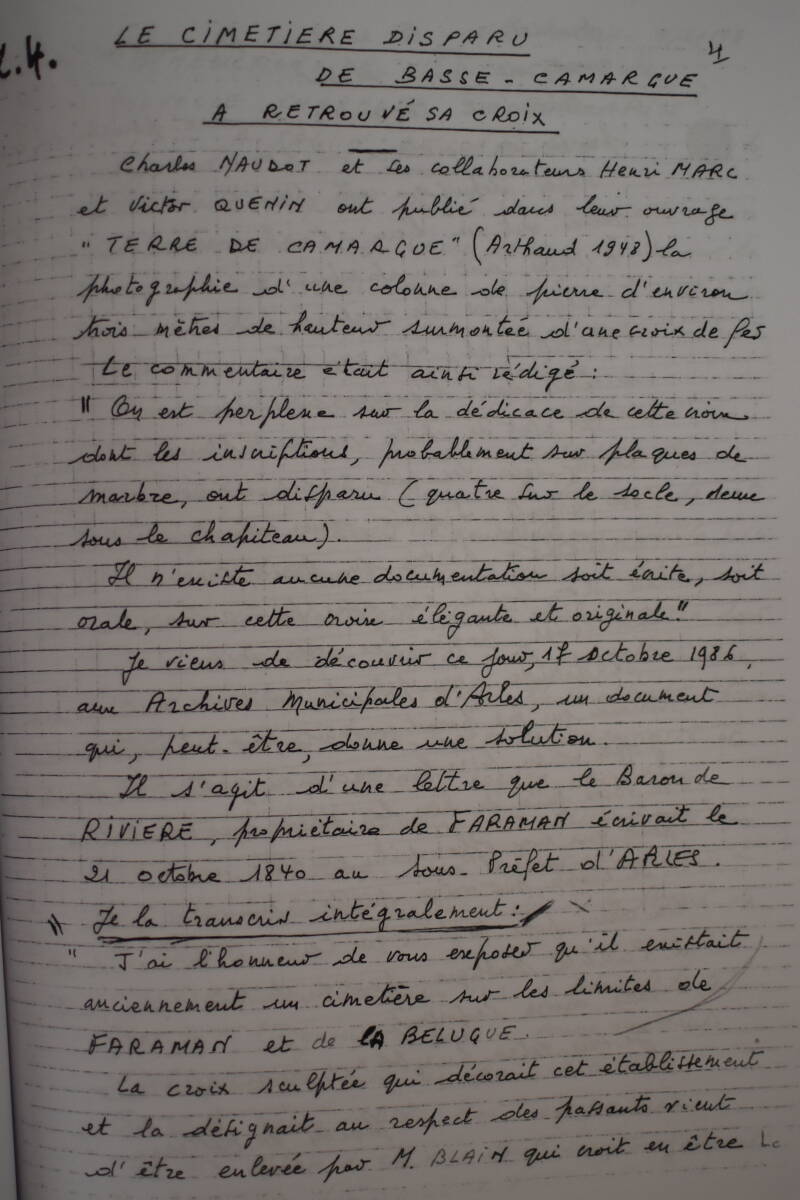 LE CIMETIERE DISPARU
4
2.4.
DE BASSE - CAMARGUE
A RETROUVÉ SA CROIX
Charles NAUDOT et ses collaborateurs Henri MARC
et Victor QUENIN ont publié dans leur ouvrage
" TERRE DE CAMARGUE" (Arthaud 1948) la
photographie d'une colonne de pierre d'environ
trois mètres de hauteur surmontée d'une croix de fer
Le commentaire était ainsi rédigé :
" On est perplexe sur la dédicace de cette croix
dont les inscriptions, probablement sur plaques de
marbre, ont disparu (quatre sur le socle, deux
sous le chapiteau).
Il n'existe aucune documentation soit écrite, soit
orale, sur cette croix élégante et originale."
Je viens de découvrir ce jour, 17 Octobre 1986,
aux Archives Municipales d'Arles, un document
qui, peut-être, donne une solution.
Il s'agit d'une lettre que le Baron de
RIVIERE, propriétaire de FARAMAN écrivait le
21 octobre 1840 au Sous-Préfet d'ARLES.
" Je la transcris intégralement :
" J'ai l'honneur de vous exposer qu'il existait
anciennement un cimetière sur les limites de
FARAMAN et de LA BELUGUE.
La croix sculptée qui décorait cet établissement
et la désignait au respect des passants vient
d'être enlevée par M. BLAIN qui croit en être le